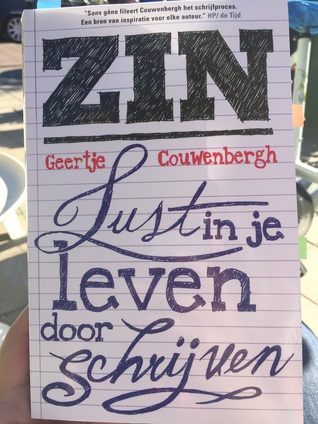 "Sans gêne fileert Couwenbergh het schrijfproces.
Een bron van inspiratie voor elke auteur." HP/ de Tijd
ZIN
Geertje Couwenbergh
Lust in je
leven
door
schrijven